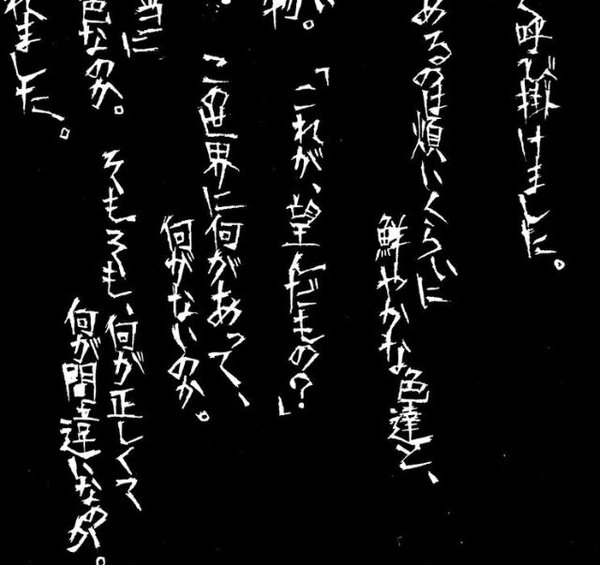 く呼び掛けました。
あるのは煩いくらいに
鮮やかな色達と、
物。
「これが、望んだもの?」
この世界に何があって、
何がないのか。
当に
色なのか。
そもそも、何が正しくて
何が間違いなのか。
れました。